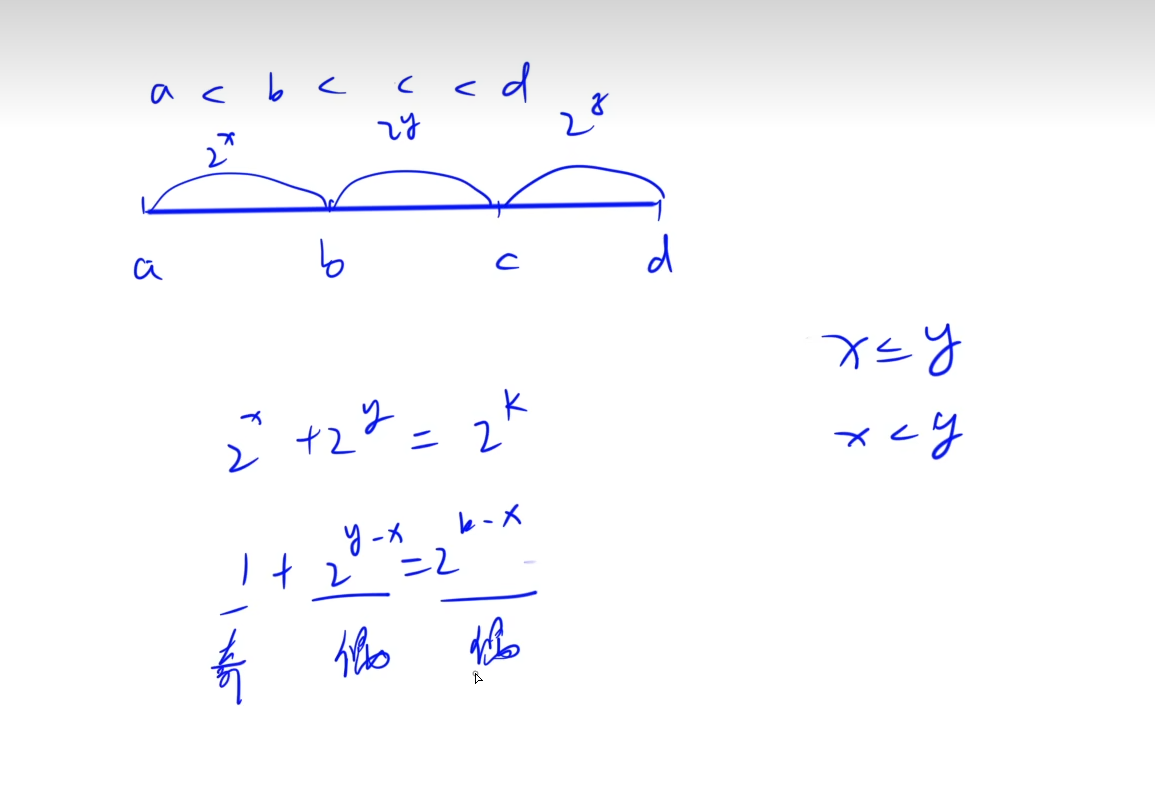 a < b < c < d
2^x 2^y 2^z
a b c d
x ≤ y
x < y
2^x + 2^y = 2^k
1 + 2^{y-x} = 2^{k-x}
奇 偶 偶